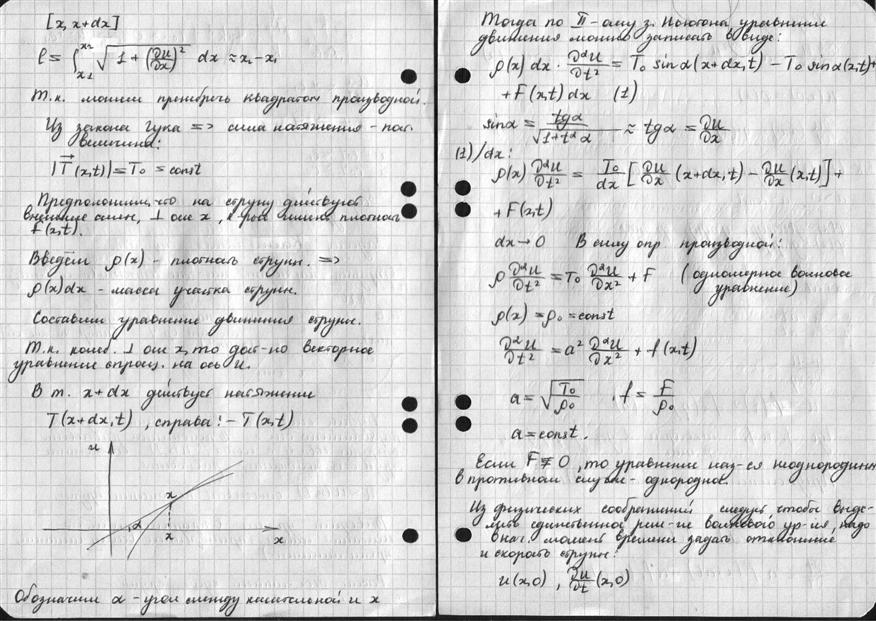 [x, x+dx]
ℓ = ∫_{x1}^{x2} √(1 + (∂u/∂x)²) dx ≈ x₂ - x₁
Т.к. можем пренебречь квадратом производной.
Из закона Гука => сила натяжения - пост.
величина:
|T⃗(x,t)| = T₀ = const
Предположим, что на струну действуют
внешние силы, ⊥ оси x, плотность
F(x,t).
Введём ρ(x) - плотность струны. =>
ρ(x)dx - масса участка струны.
Составим уравнение движения струны.
Т.к. колеб. ⊥ оси x, то дост-но векторное
уравнение спроец. на ось u.
В т. x+dx действует натяжение
T(x+dx,t), справа: -T(x,t)
u
x
α
x
x
Обозначим α - угол между касательной и x
Тогда по II-ому з. Ньютона уравнение
движения можно записать в виде:
ρ(x)dx · ∂²u/∂t² = T₀ sinα(x+dx,t) - T₀ sinα(x,t)+
+ F(x,t)dx (1)
sinα = tgα/√(1+t²α) ≈ tgα = ∂u/∂x
(1)/dx:
ρ(x) ∂²u/∂t² = T₀/dx [∂u/∂x (x+dx,t) - ∂u/∂x (x,t)] +
+ F(x,t)
dx→0 В силу опр производной:
ρ ∂²u/∂t² = T₀ ∂²u/∂x² + F (одномерное волновое
уравнение)
ρ(x) = ρ₀ = const
∂²u/∂t² = a² ∂²u/∂x² + f(x,t)
a = √(T₀/ρ₀) , f = F/ρ₀
a = const.
Если F ≢ 0, то уравнение наз-ся неоднородным
в противном случае - однородное.
Из физических соображений следует чтобы выде-
лить единственное реш-ие волнового ур-ия, надо
в нач. момент времени задать отклонение
и скорость струны:
u(x,0) , ∂u/∂t (x,0)